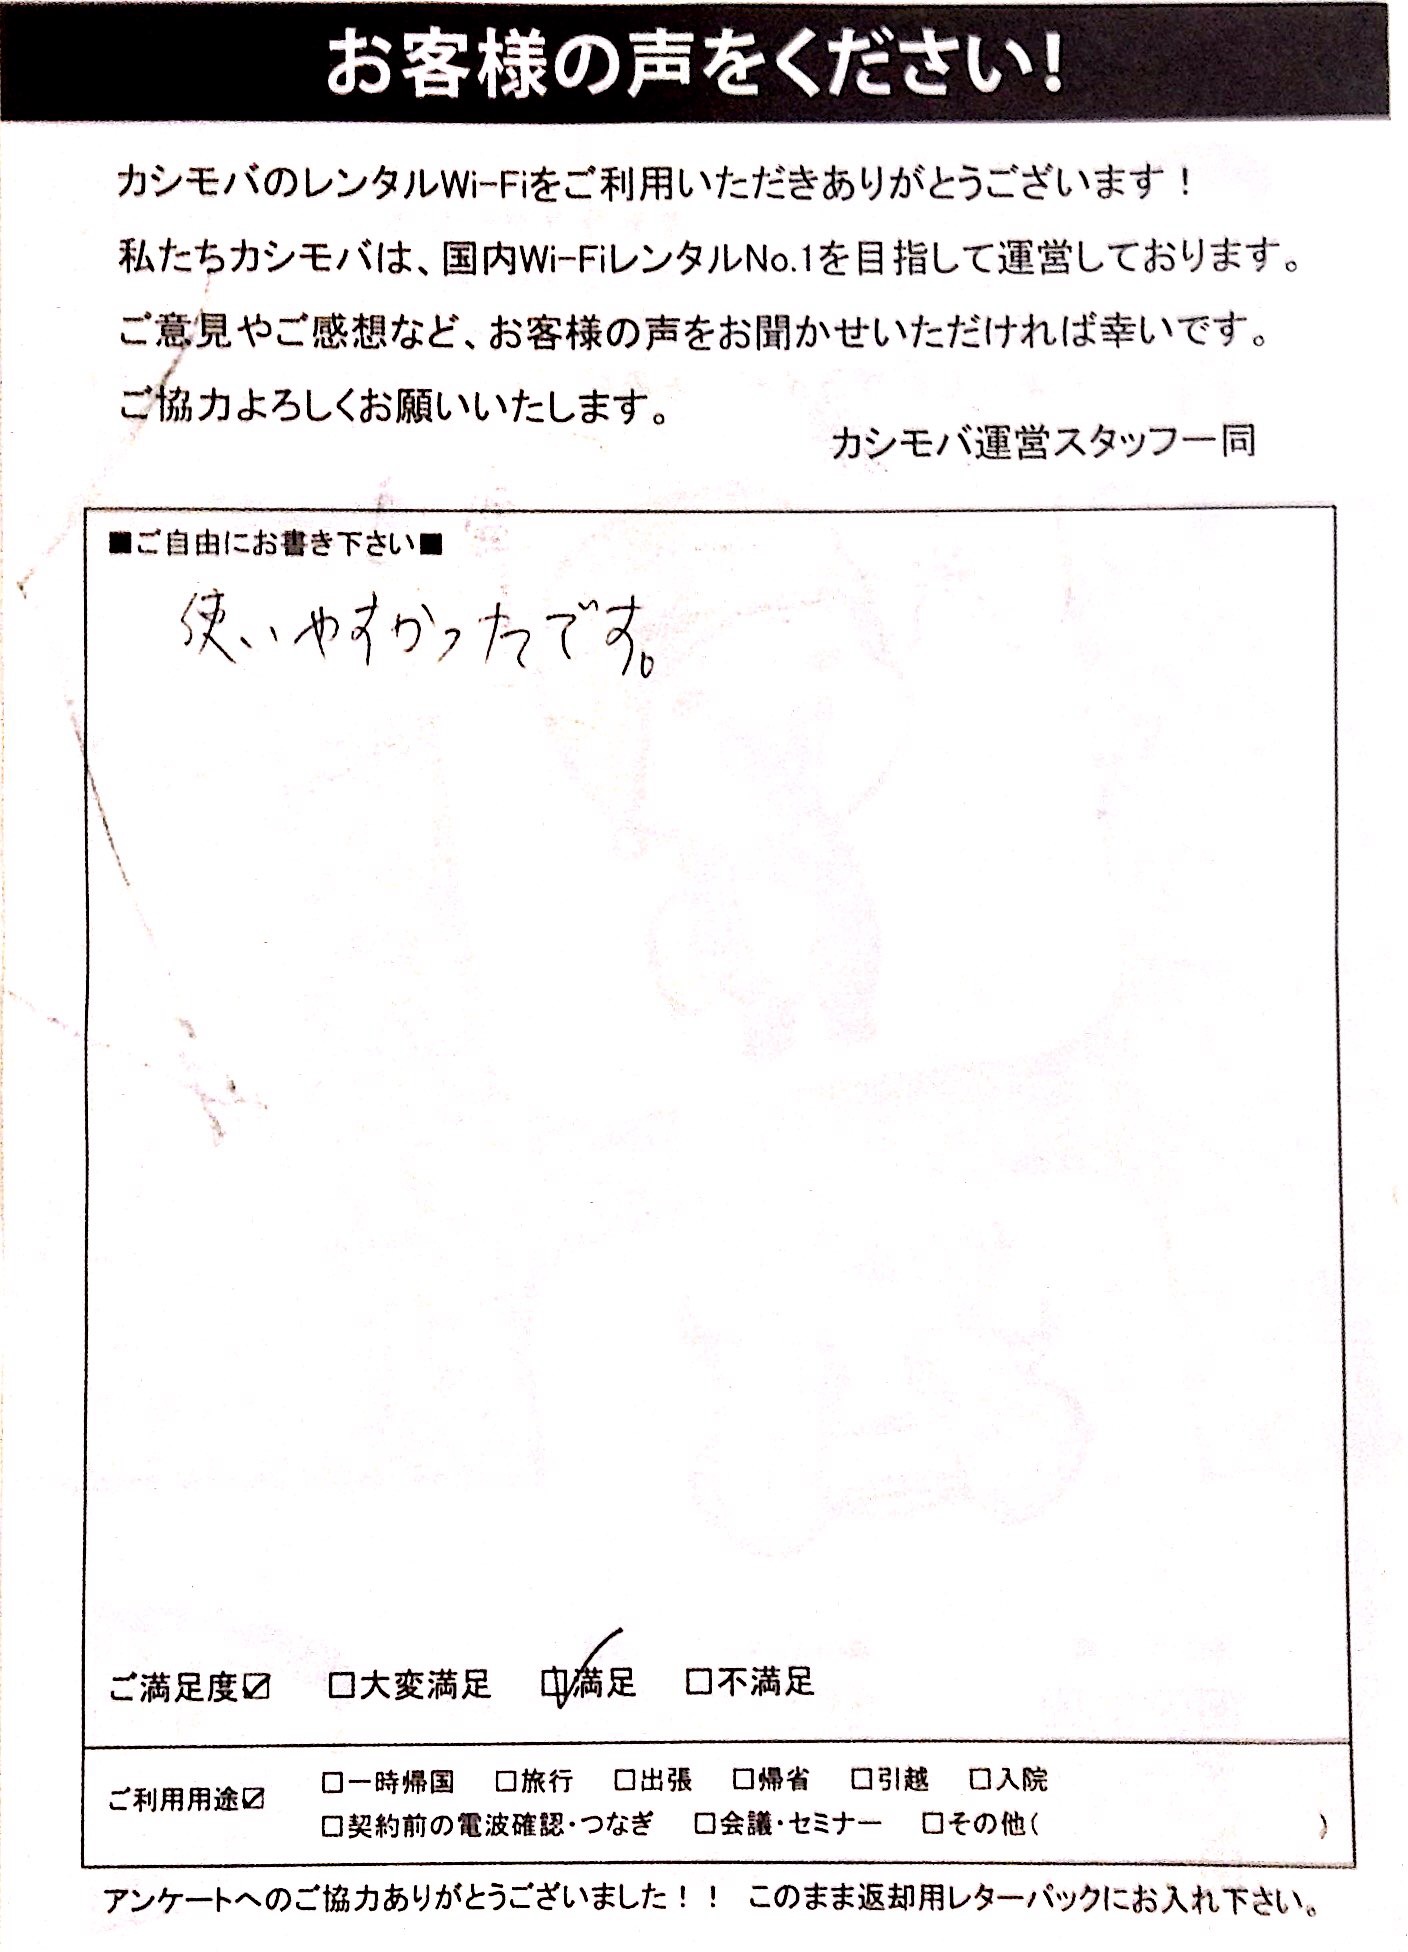 お客様の声をください!
カシモバのレンタルWi-Fiをご利用いただきありがとうございます！
私たちカシモバは、国内Wi-FiレンタルNo.1を目指して運営しております。
ご意見やご感想など、お客様の声をお聞かせいただければ幸いです。
ご協力よろしくお願いいたします。
カシモバ運営スタッフ一同
■ご自由にお書き下さい■
使いやすかったです。
ご満足度☑ □大変満足 ☑満足 □不満足
ご利用用途☑ □一時帰国 □旅行 □出張 □帰省 □引越 □入院
□契約前の電波確認・つなぎ □会議・セミナー □その他( )
アンケートへのご協力ありがとうございました！！ このまま返却用レターパックにお入れ下さい。